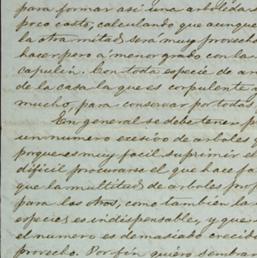 para formar así una arboleda
poco costo, calculando que aunque
la otra mitad será muy provecho
hacer pero á menor grado con las
capulin. Con toda especie de ar
de la casa la que es corpulenta a
mucho, para conservar por todos
En general se debe tener p
un número excesivo de arboles y
porque es muy facil suprimir el
dificil procurarse el que hace fa
que la multitud de arboles pro
para los otros, como tambien la
especies es indispensable, y que
el número es demasiado crecido
provecho. Por fin, quiero sembrar